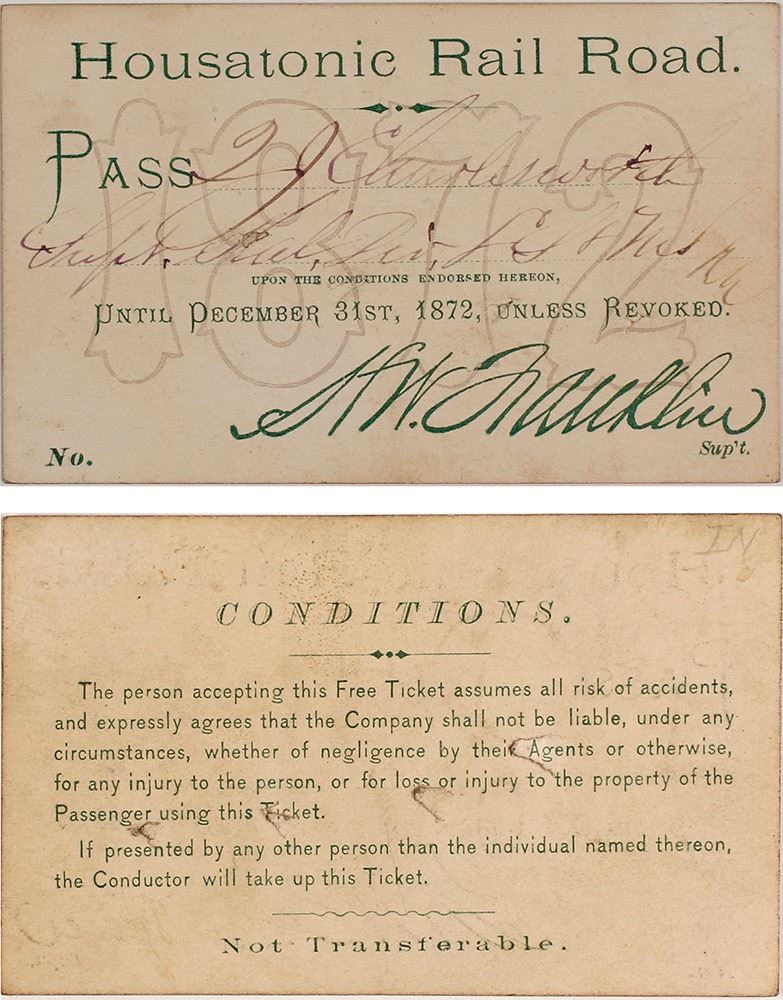 Housatonic Rail Road.
1872
PASS J Charlesworth
Supt. Div, L S & M S Rw
UPON THE CONDITIONS ENDORSED HEREON,
UNTIL DECEMBER 31ST, 1872, UNLESS REVOKED.
H W. Franklin
Sup't.
No.
IN
CONDITIONS.
The person accepting this Free Ticket assumes all risk of accidents,
and expressly agrees that the Company shall not be liable, under any
circumstances, whether of negligence by their Agents or otherwise,
for any injury to the person, or for loss or injury to the property of the
Passenger using this Ticket.
If presented by any other person than the individual named thereon,
the Conductor will take up this Ticket.
Not Transferable.